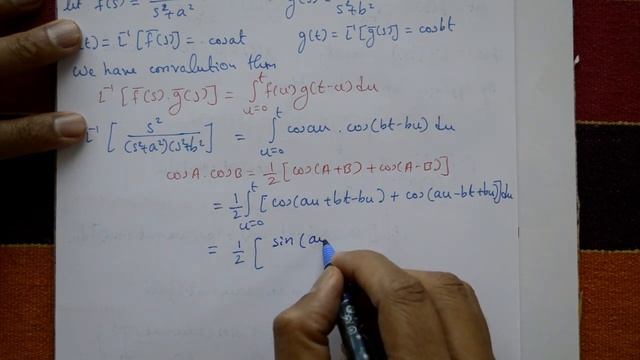 let f̄(s) = s²+a² ḡ(s) = s²+b²
(t) = L⁻¹[f̄(s)] = cosat g(t) = L⁻¹[ḡ(s)] = cosbt
we have convalution thm
L⁻¹[f̄(s).ḡ(s)] = ∫ᵗᵤ₌₀ f(u) g(t-u) du
L⁻¹[s²/((s²+a²)(s²+b²))] = ∫ᵗᵤ₌₀ cosau . cos(bt-bu) du
cosA.cosB = 1/2 [cos(A+B) + cos(A-B)]
= 1/2 ∫ᵗᵤ₌₀ [cos(au+bt-bu) + cos(au-bt+bu)] du
= 1/2 [ sin(au